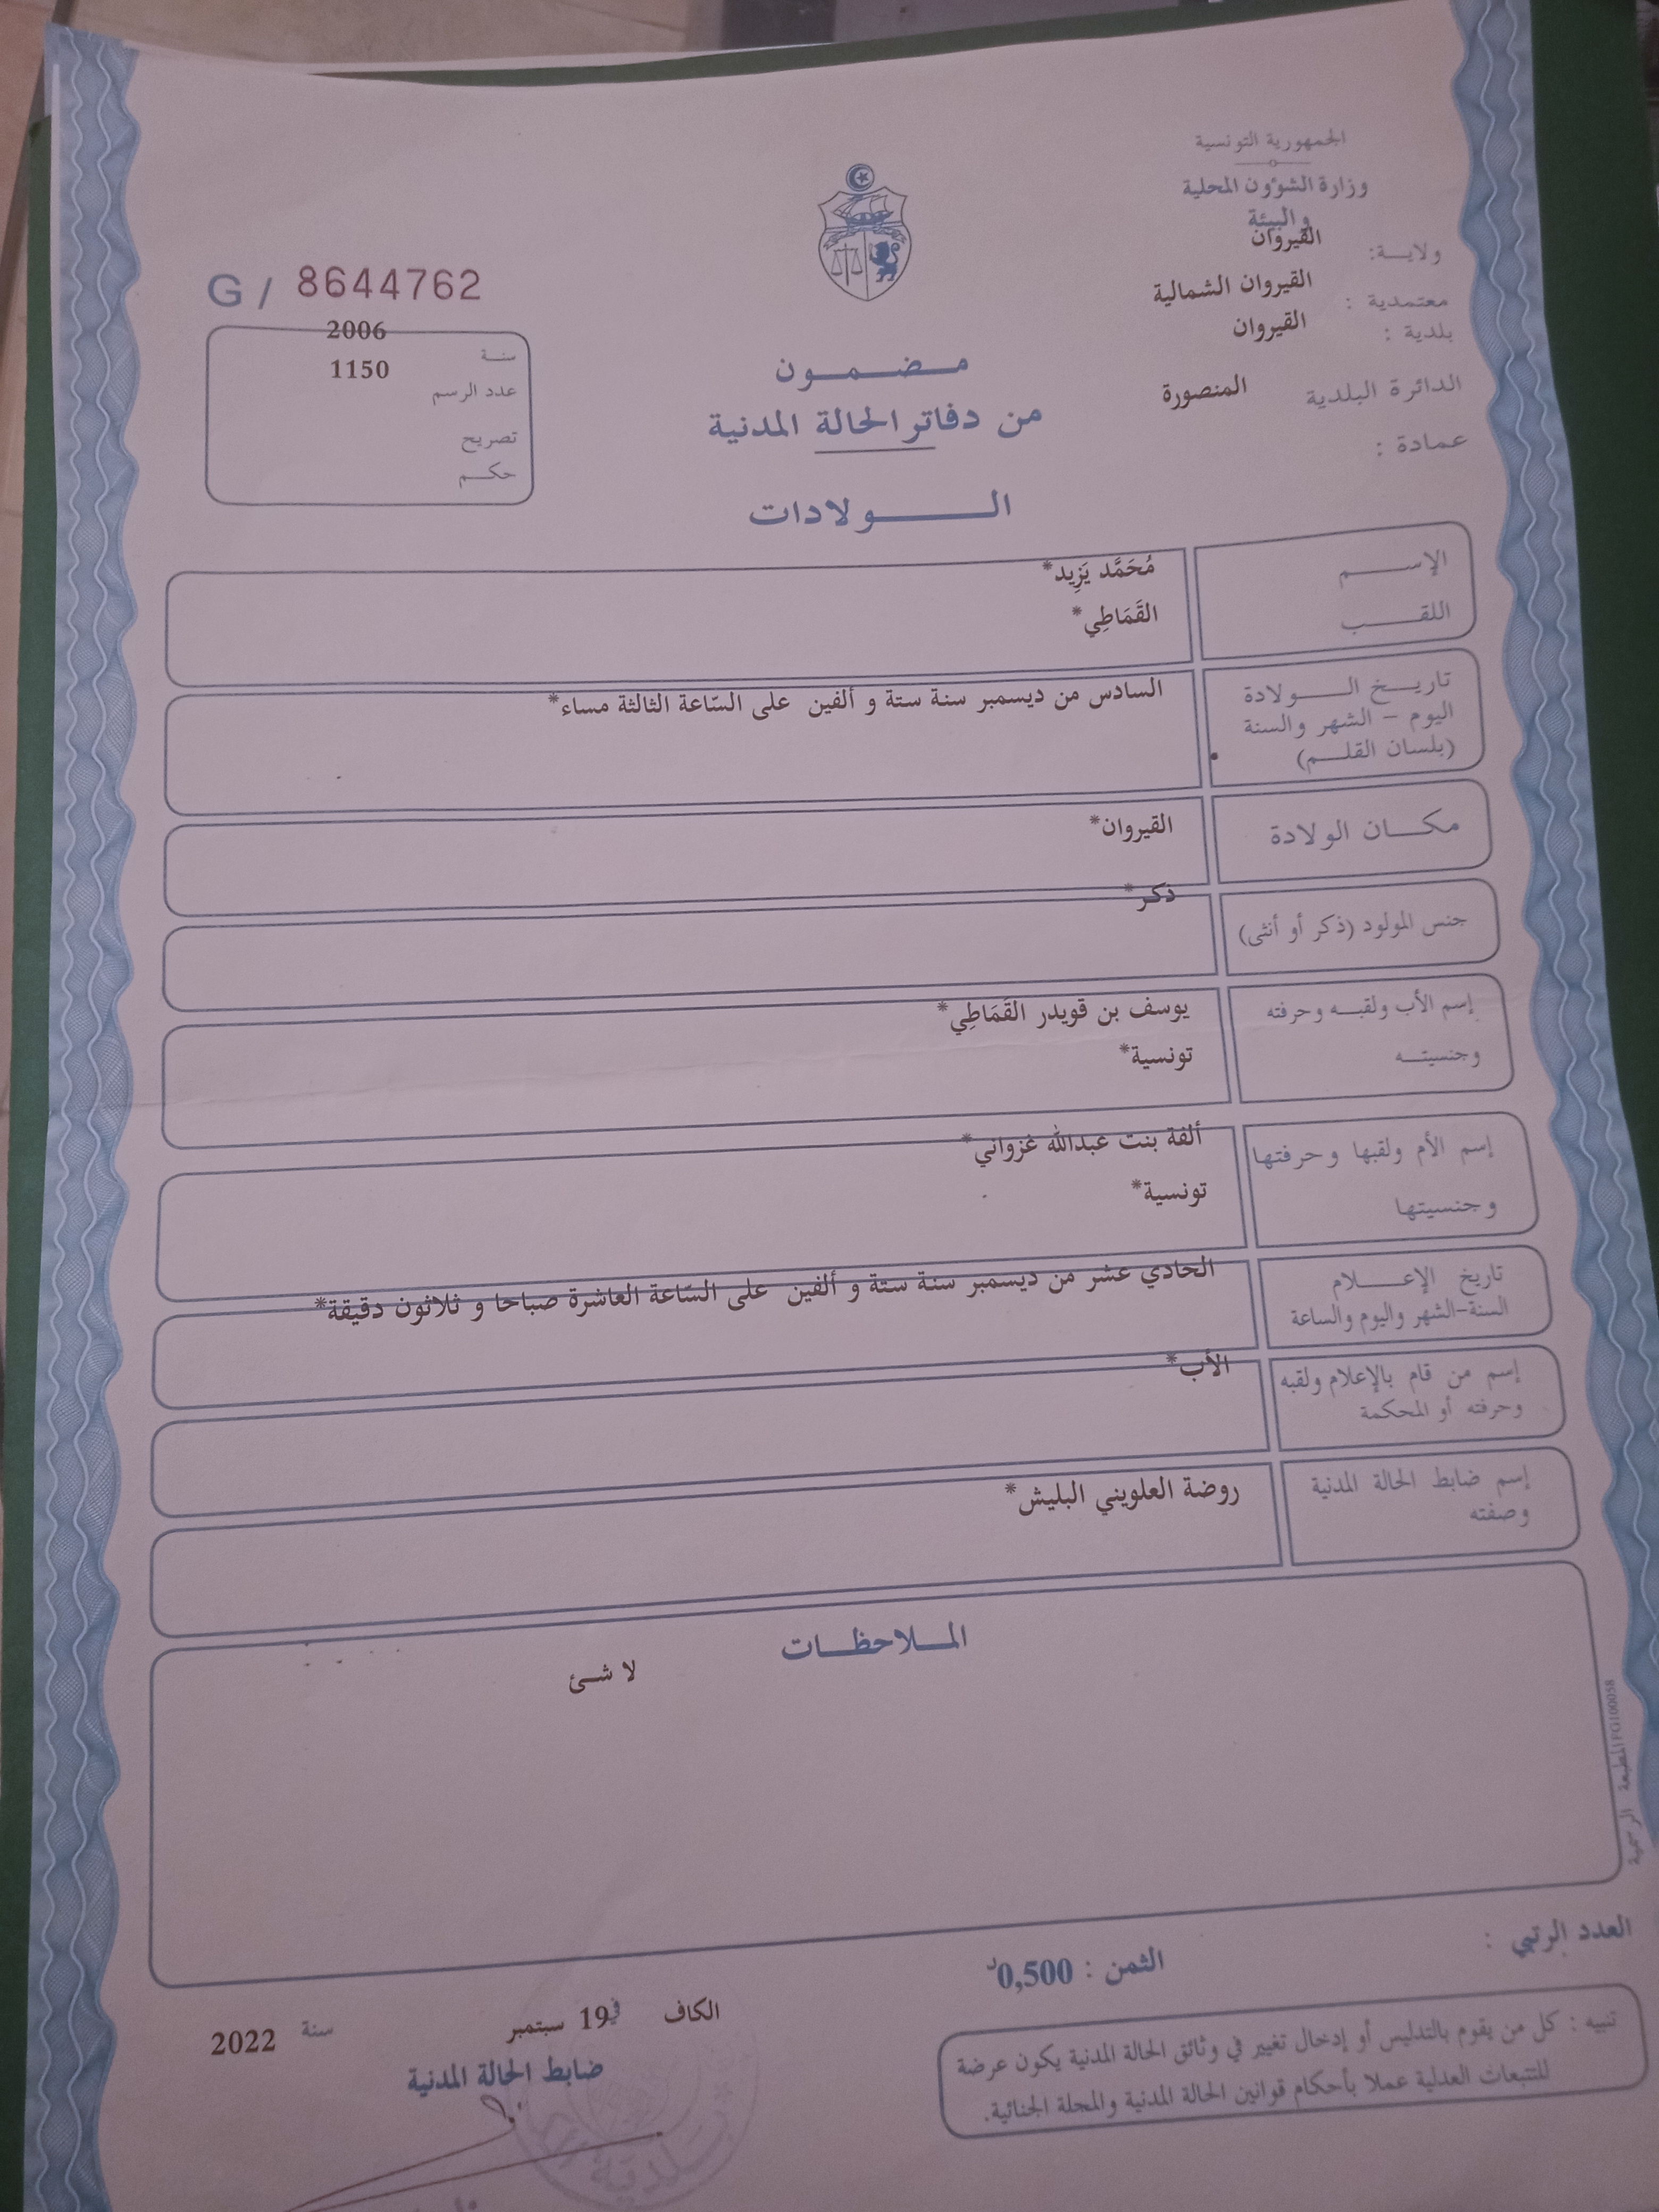 الجمهورية التونسية
وزارة الشؤون المحلية
والبيئة
ولايـــة: القيروان
معتمدية : القيروان الشمالية
بلدية : القيروان
الدائرة البلدية المنصورة
عمادة :
G / 8644762
سنـة 2006
عدد الرسم 1150
تصريح
حكــم
مـــضـــمـــون
من دفاتر الحالة المدنية
الــــــولادات
الإســــــم مُحَمَّد يَزِيد*
اللقـــــب القَمَاطِي*
تاريــخ الــــولادة السادس من ديسمبر سنة ستة و ألفين على السّاعة الثالثة مساء*
اليوم – الشهر والسنة
(بلسان القلـــم)
مكـــان الولادة القيروان*
جنس المولود (ذكر أو أنثى) ذكر*
إسم الأب ولقبـــه وحرفته يوسف بن قويدر القَمَاطِي*
وجنسيتــه تونسية*
إسم الأم ولقبها وحرفتها ألفة بنت عبدالله غزواني*
وجنسيتها تونسية*
تاريخ الإعــــلام الحادي عشر من ديسمبر سنة ستة و ألفين على السّاعة العاشرة صباحا و ثلاثون دقيقة*
السنة-الشهر واليوم والساعة
إسم من قام بالإعلام ولقبه الأب*
وحرفته أو المحكمة
إسم ضابط الحالة المدنية روضة العلويني البليش*
وصفته
المـــلاحظـــات
لا شـئ
المطبعة الرسمية FG100058
العدد الرتبي :
الثمن : 0,500د
الكاف في 19 سبتمبر سنة 2022
ضابط الحالة المدنية
تنبيه : كل من يقوم بالتدليس أو إدخال تغيير في وثائق الحالة المدنية يكون عرضة
للتتبعات العدلية عملا بأحكام قوانين الحالة المدنية والمجلة الجنائية.
بلدية